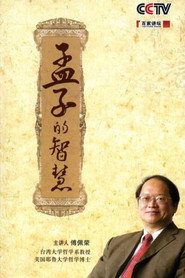 CCTV
百家讲坛
孟子的智慧
主讲人 傅佩荣
台湾大学哲学系教授
美国耶鲁大学哲学博士